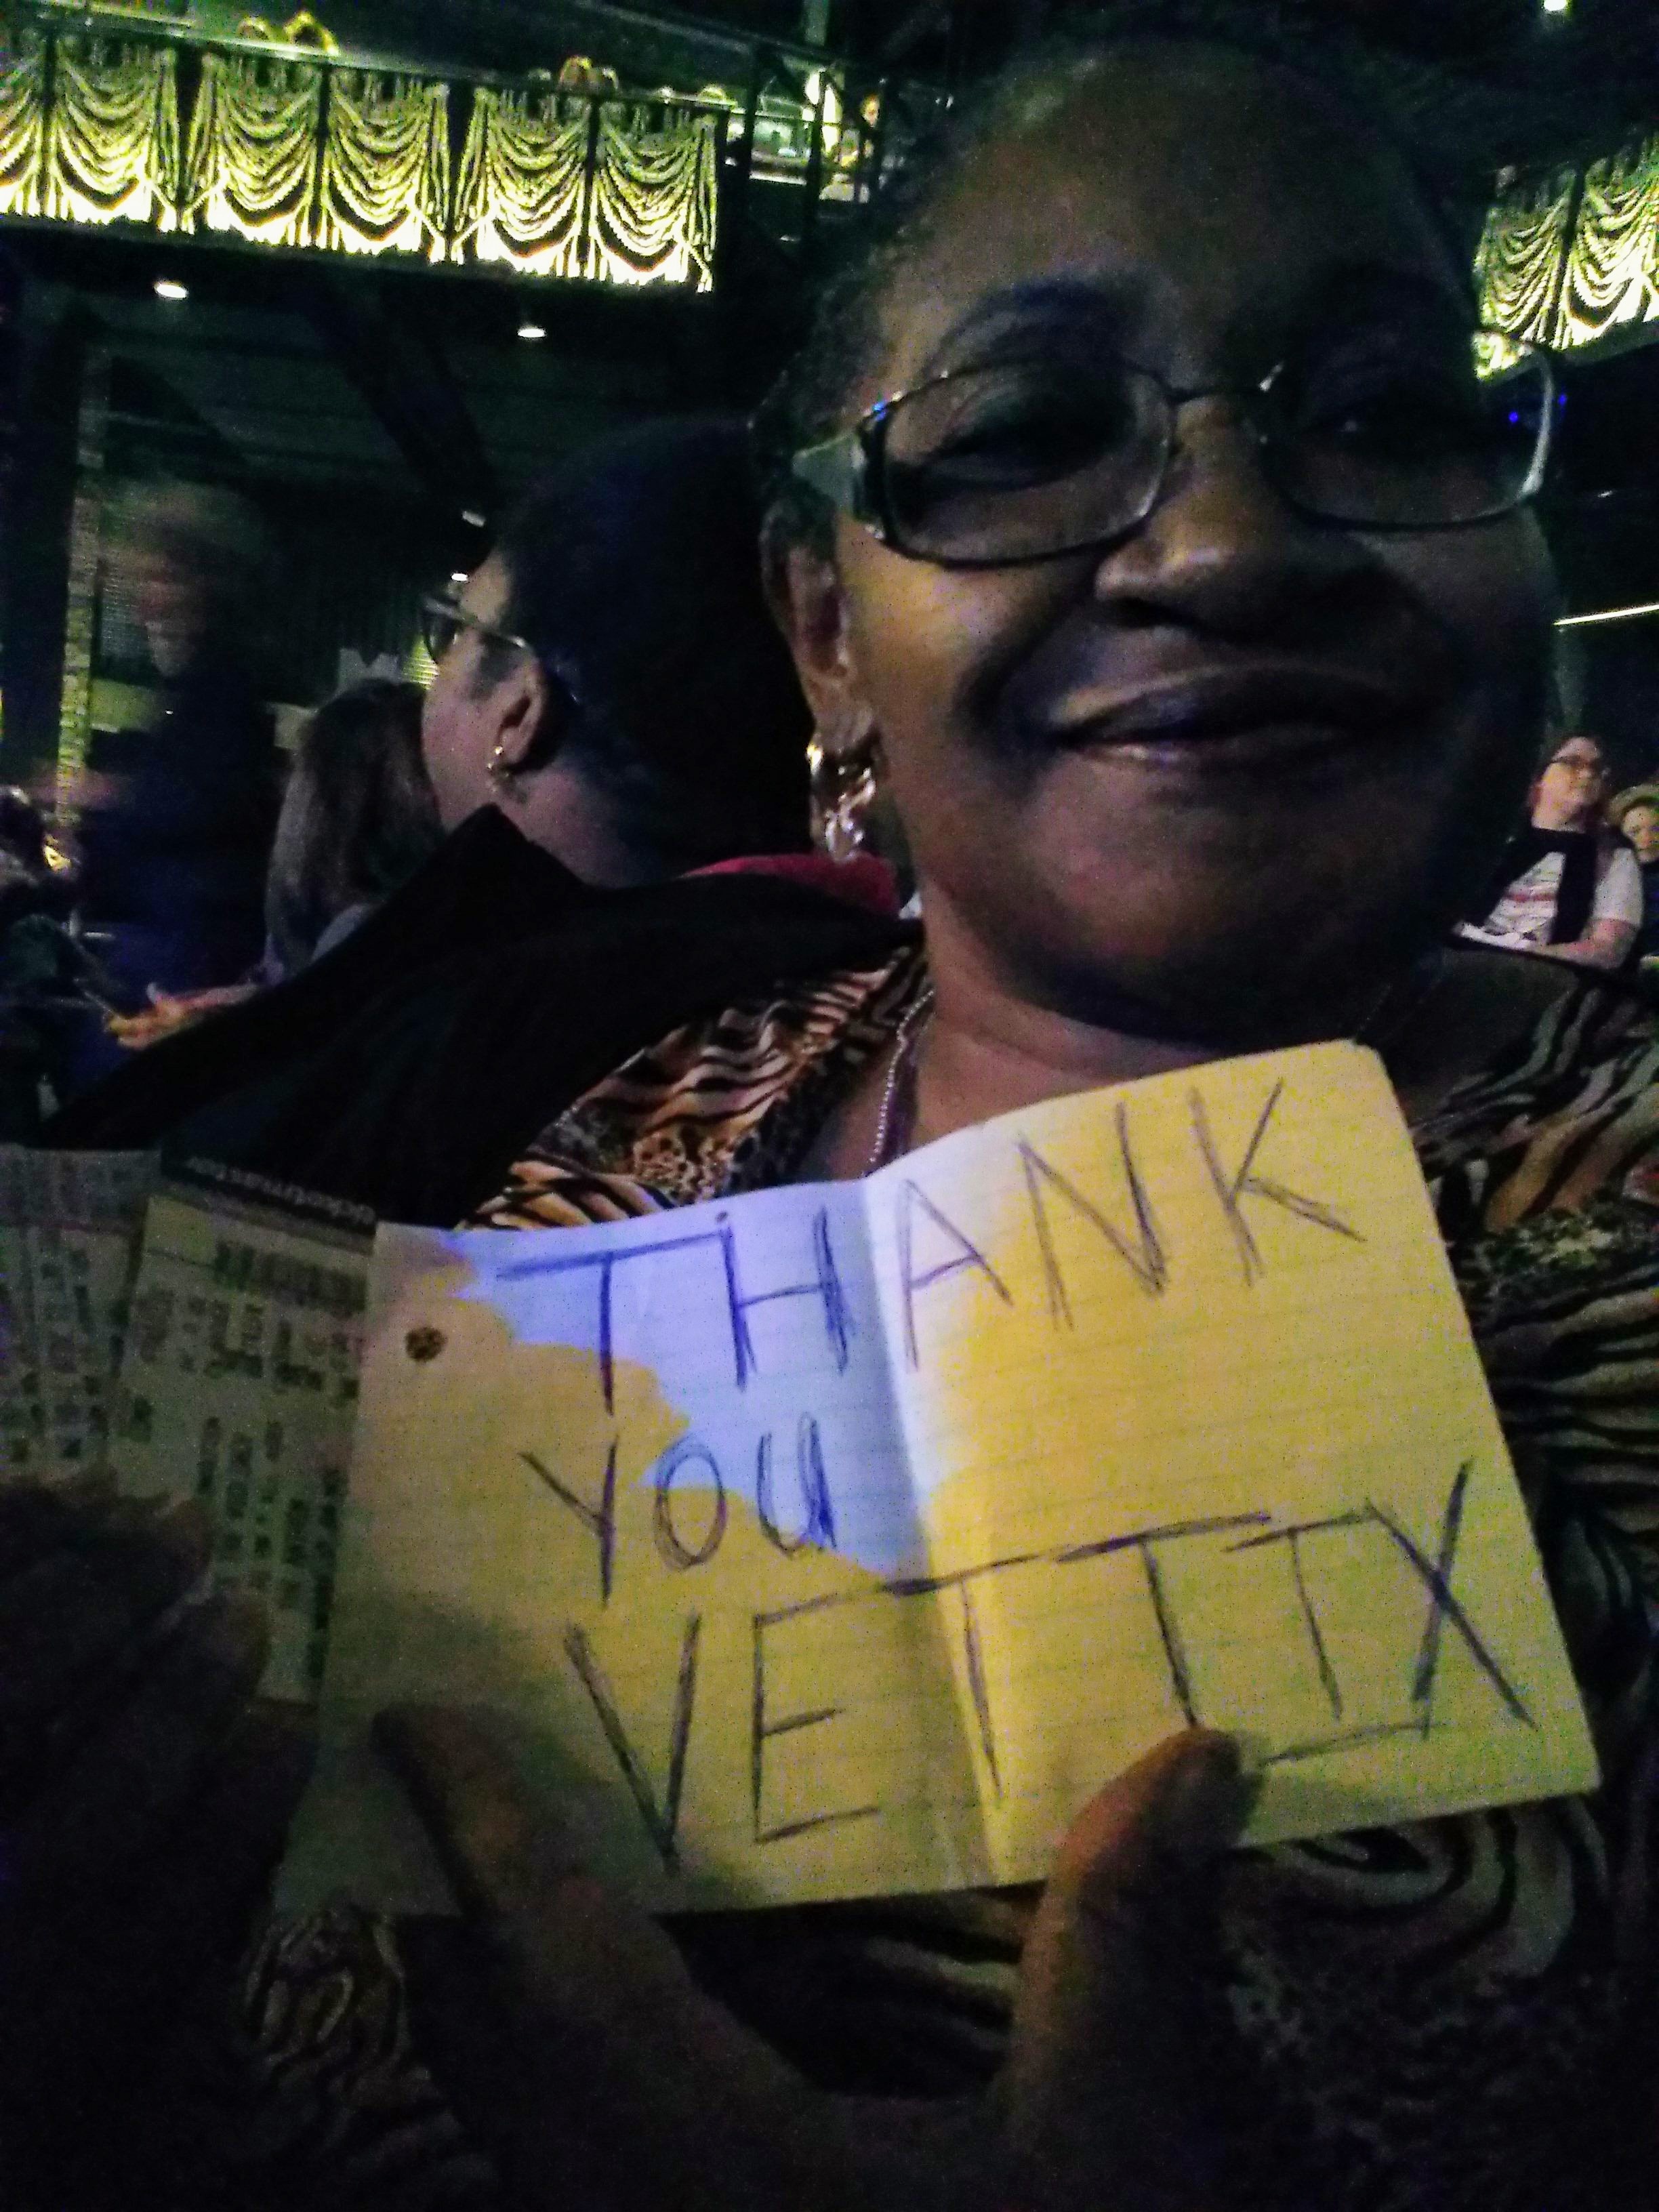 THANK
YOU
VETTIX